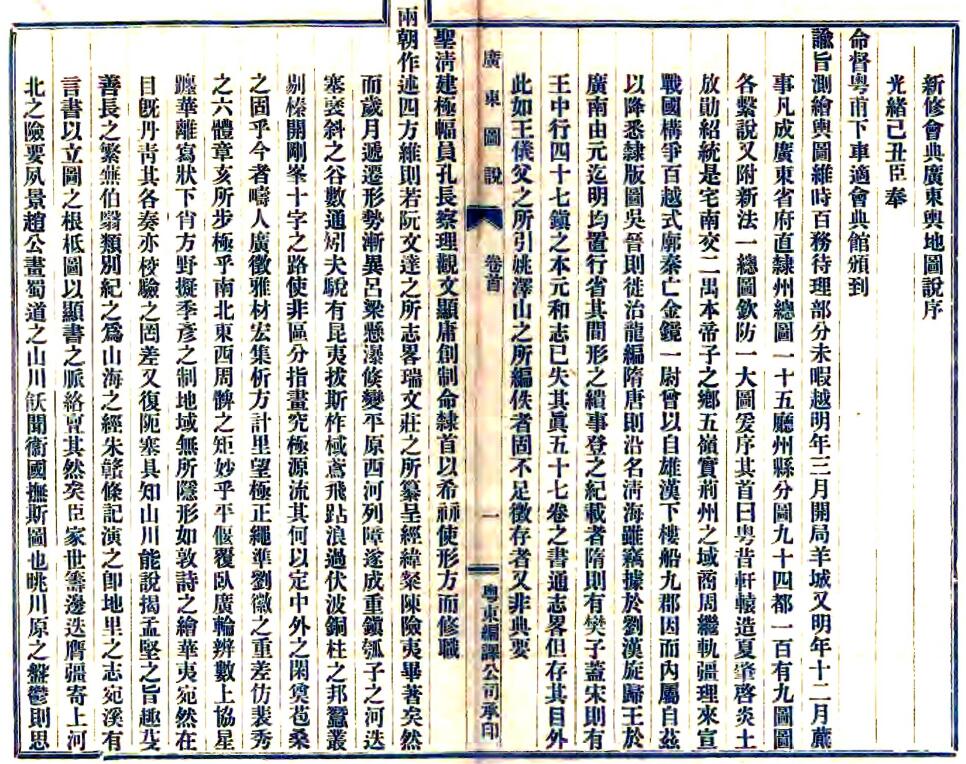 新修會典廣東輿地圖說序
光緒己丑臣奉
命督粵甫下車適會典館頒到
諭旨測繪輿圖維時百務待理部分未暇越明年三月開局羊城又明年十二月蕆
事凡成廣東省府直隸州總圖一十五廳州縣分圖九十四都一百有九圖圖
各繫說又附新法一總圖欽防一大圖爰序其首曰粵昔軒轅造夏肇啓炎土
放勛紹統是宅南交二禺本帝子之鄉五嶺實荊州之域商周繼軌疆理來宣
戰國構爭百越式廓秦亡金鏡一尉曾以自雄漢下樓船九郡因而內屬自茲
以降悉隸版圖吳晉則徙治龍編隋唐則沿名淸海雖竊據於劉漢旋歸王於
廣南由元迄明均置行省其間形之繢事登之紀載者隋則有樊子蓋宋則有
王中行四十七鎭之本元和志已失其眞五十七卷之書通志畧但存其目外
此如王儀父之所引姚澤山之所編佚者固不足徵存者又非典要
聖淸建極幅員孔長察理觀文顯庸創制命隸首以希祘使形方而修職
兩朝作述四方維則若阮文達之所志畧瑞文莊之所纂呈經緯粲陳險夷畢著矣然
而歲月遞遷形勢漸異呂梁懸瀑倐變平原西河列障遂成重鎭瓠子之河迭
塞褒斜之谷數通矧夫駾有昆夷拔斯柞棫鳶飛跕浪過伏波銅柱之邦蠶叢
剔榛開剛峯十字之路使非區分指畫究極源流其何以定中外之閑奠苞桑
之固乎今者疇人廣徵雅材宏集斫方計里望極正繩準劉徽之重差仿裴秀
之六體章亥所步極乎南北東西周髀之矩妙乎平偃覆臥廣輪辨數上協星
躔華離寫狀下肖方野擬季彥之制地域無所隱形如敦詩之繪華夷宛然在
目旣丹靑其各奏亦校驗之罔差又復阨塞具知山川能說揭孟堅之旨趣芟
善長之繁蕪伯翳類別紀之爲山海之經朱贛條記演之卽地里之志宛溪有
言書以立圖之根柢圖以顯書之脈絡亶其然矣臣家世籌邊迭膺疆寄上河
北之險要夙景趙公畫蜀道之山川飫聞衞國撫斯圖也眺川原之盤鬱則思
廣東圖說
卷首
一
粵東編譯公司承印